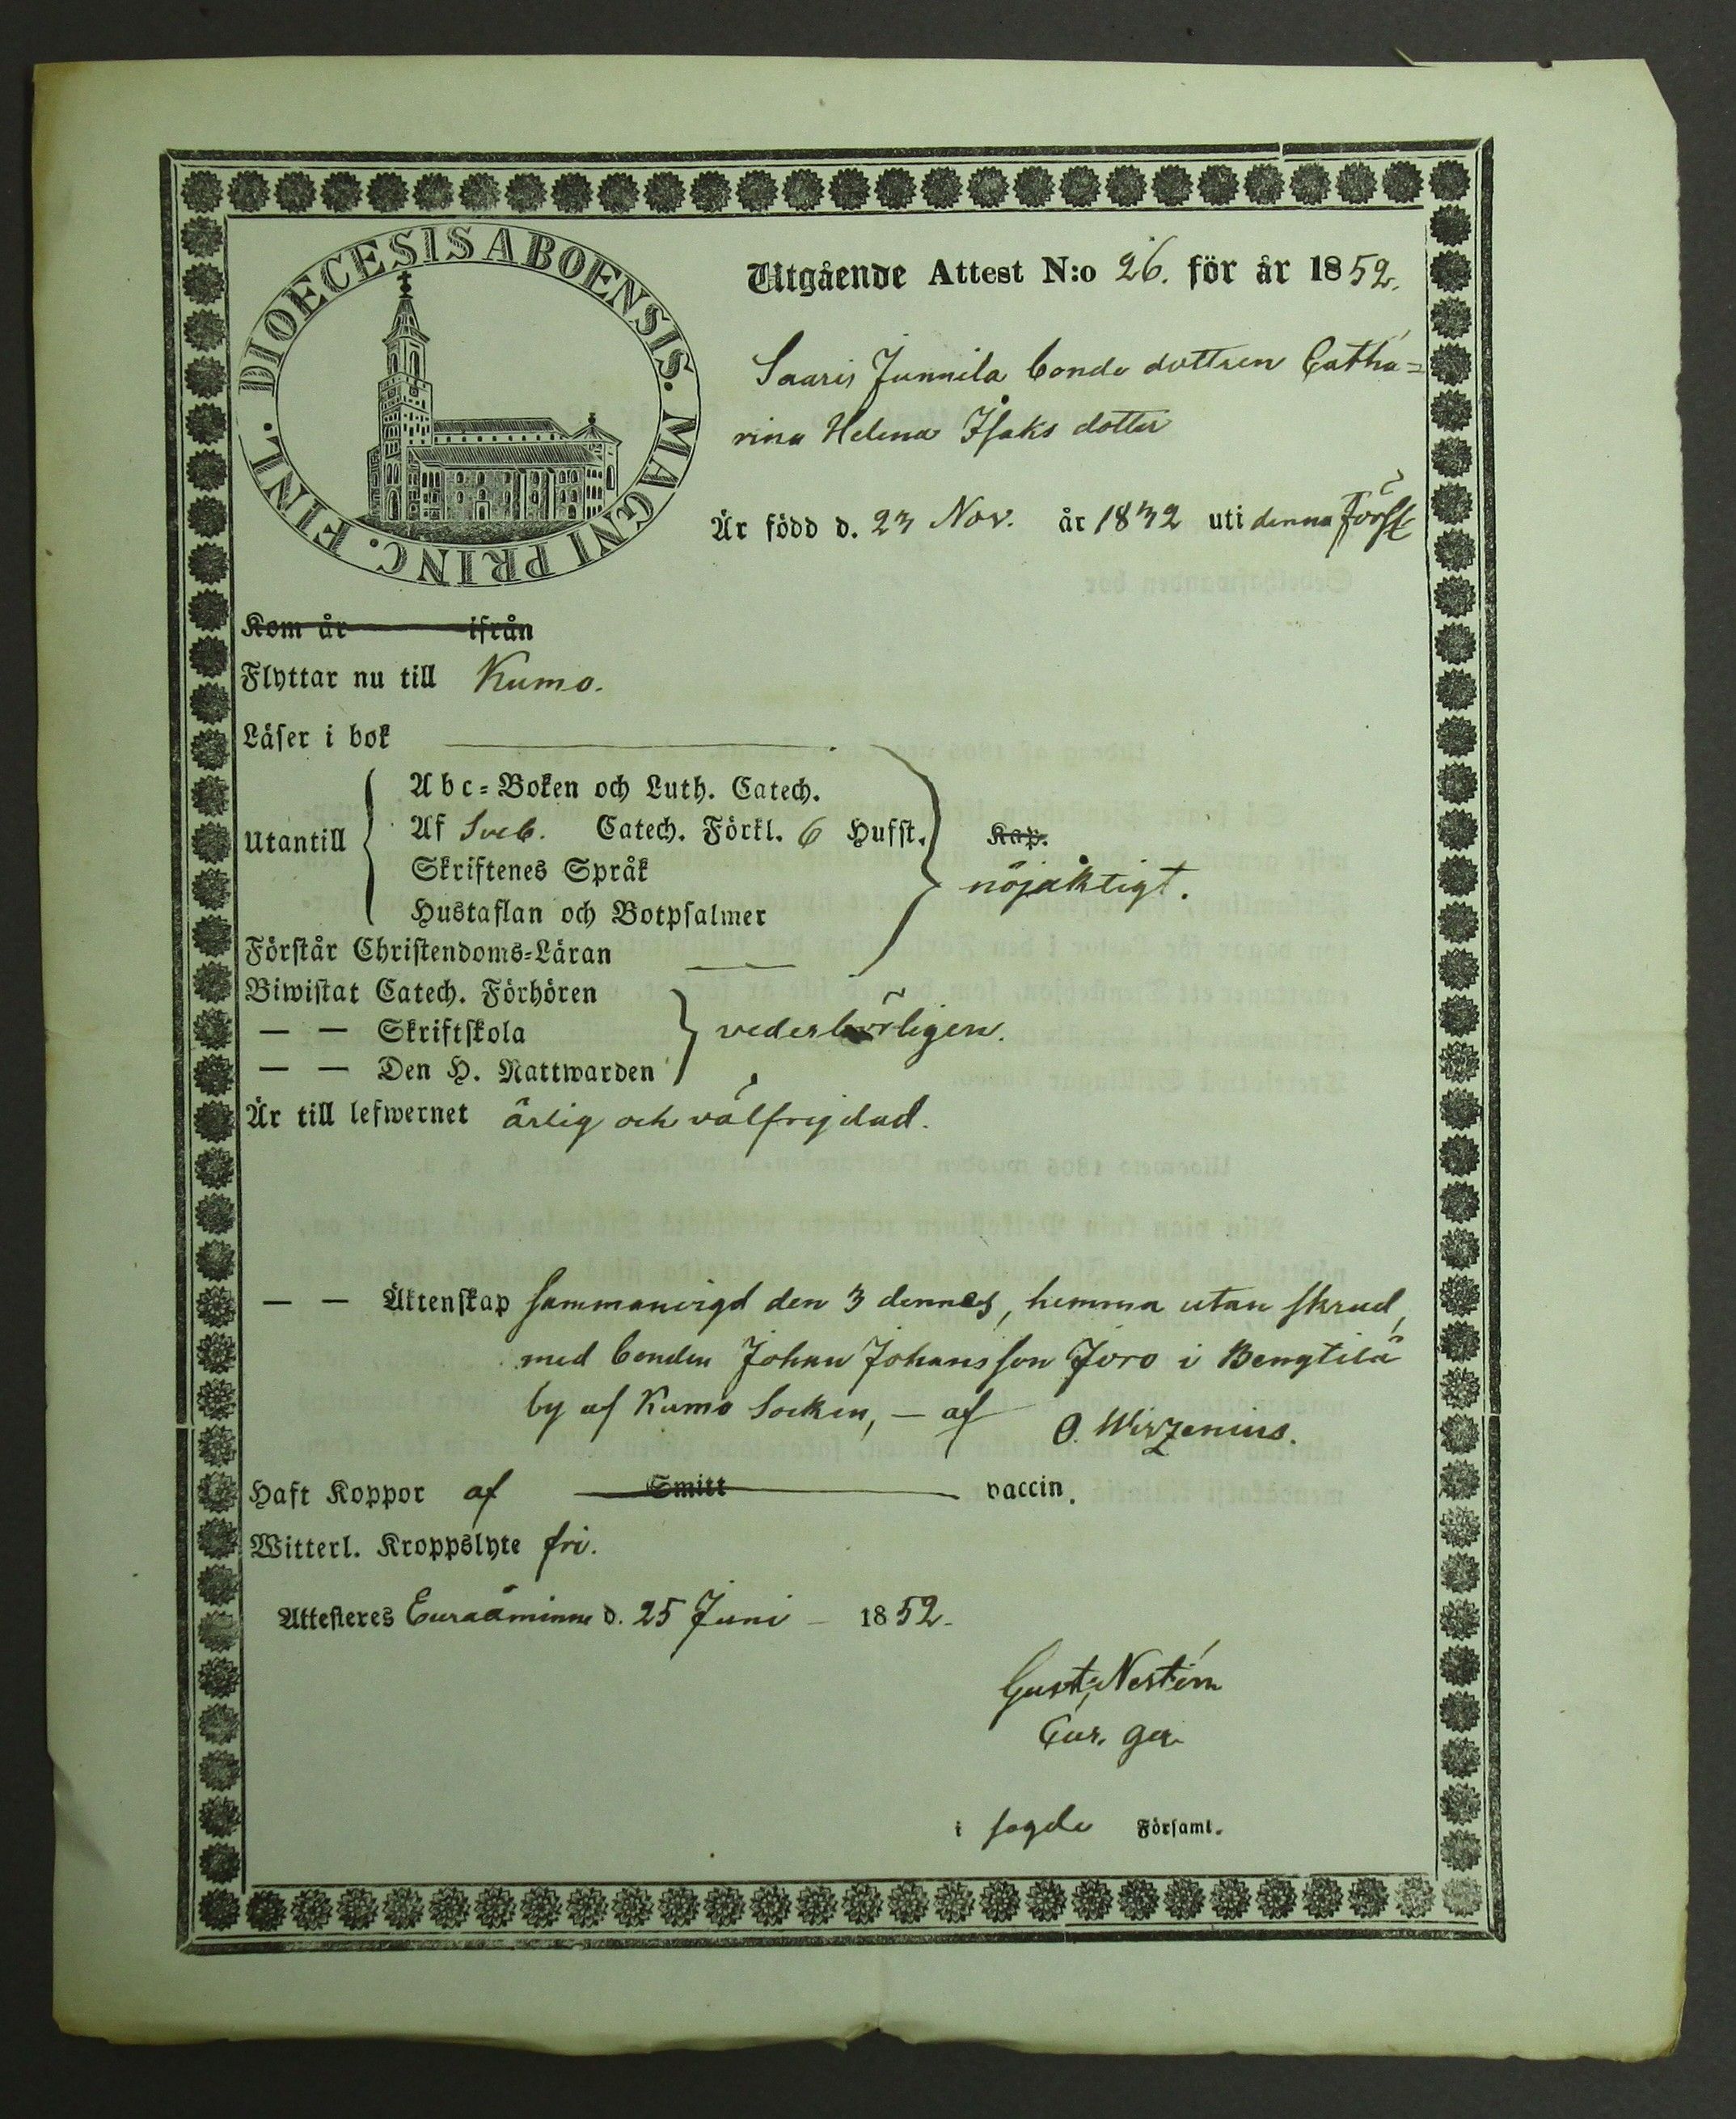 DIOECESIS ABOENSIS. MAGNI PRINC. FINL.
Utgående Attest N:o 26. för år 1852.
Saaris Junnila bonde dottren Catha=
rina Helena Isaks dotter
Är född d. 23 Nov. år 1832 uti denna Förs:
Kom år ifrån
Flyttar nu till Kumo.
Läser i bok
Utantill
Abc=Boken och Luth. Catech.
Af Sveb. Catech. Förkl. 6 Hufst.
Kap.
Skriftenes Språk
nöjaktigt.
Hustaflan och Botpsalmer
Förstår Christendoms=Läran
Biwistat Catech. Förhören
— — Skriftskola
vederbörligen.
— — Den H. Nattwarden
Är till lefwernet ärlig och välfrejdad.
— — Äktenskap sammanvigd den 3 dennes, hemma utan skrud,
med bonden Johan Johansson Joro i Bengtilä
by af Kumo Socken, — af O. Wirzenius.
Haft Koppor af Smitt vaccin.
Witterl. Kroppslyte fri.
Attesteres Euraåminne d. 25 Juni – 1852.
Gust. Nestén
i sagde Församl.